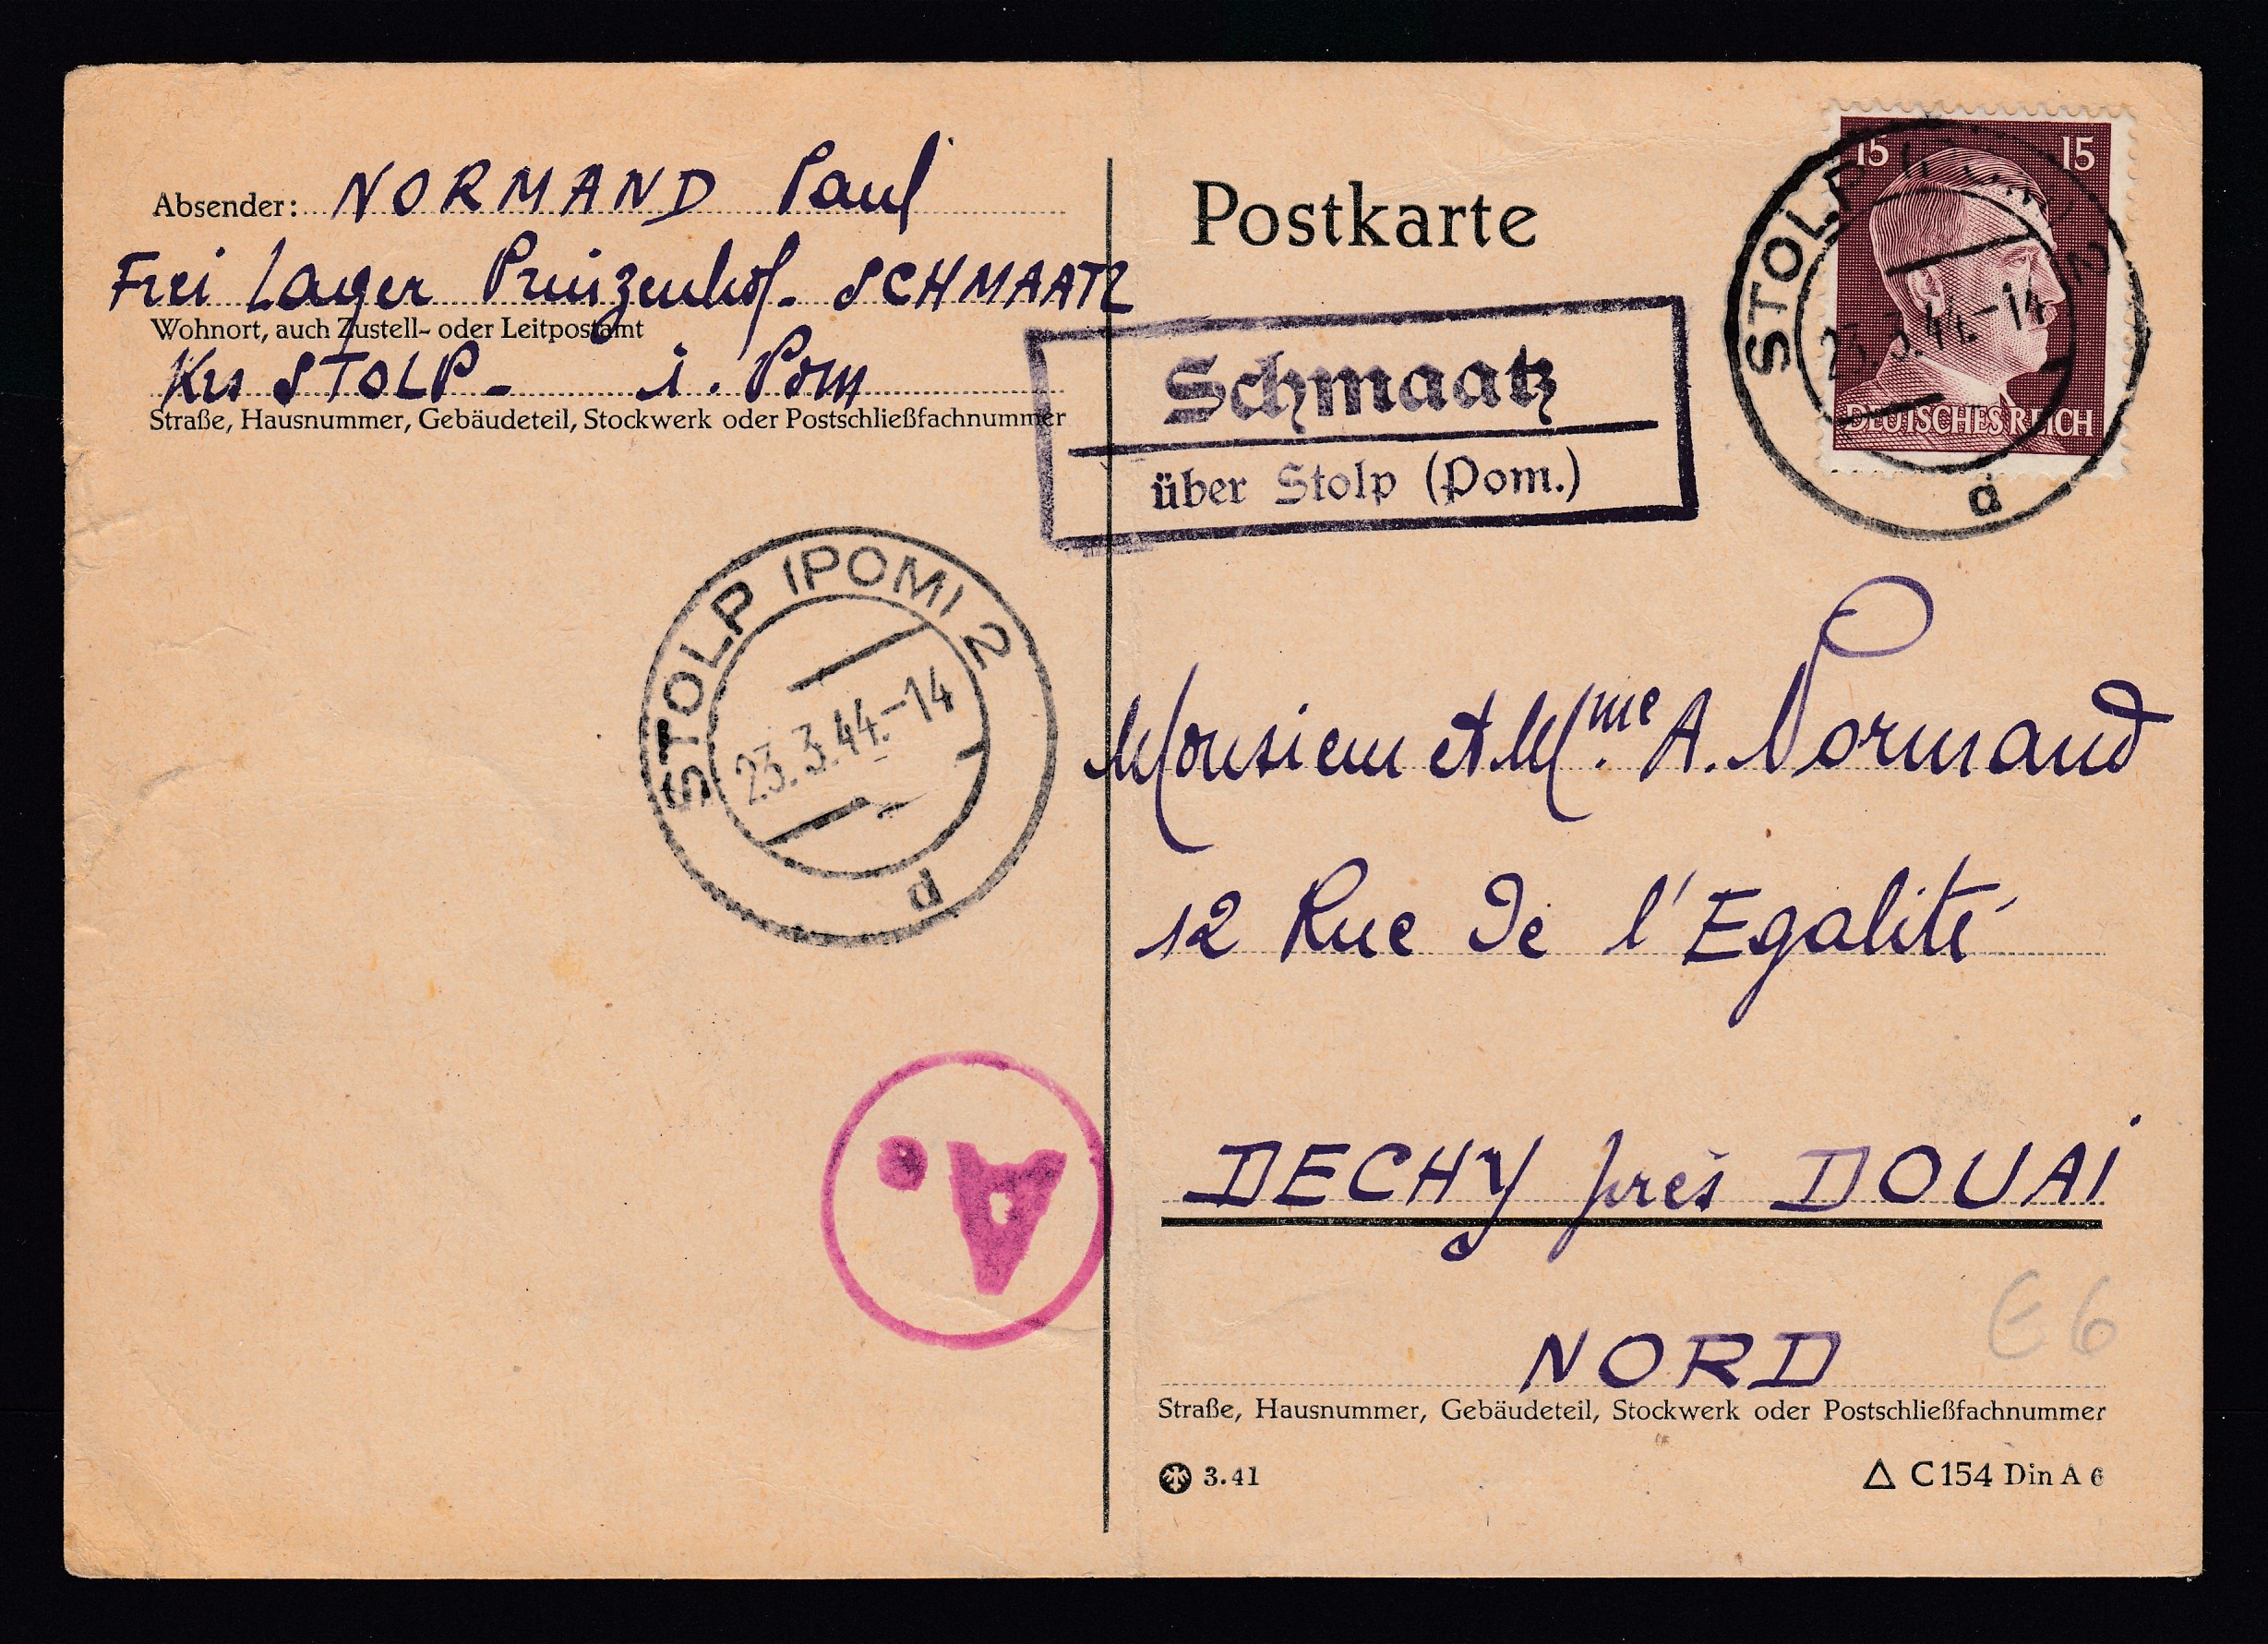 Absender: NORMAND Paul
Frei Lager Prinzenhof - SCHMAATZ
Wohnort, auch Zustell- oder Leitpostamt
Krs STOLP - i. Pom
Straße, Hausnummer, Gebäudeteil, Stockwerk oder Postschließfachnummer
Postkarte
15 15
DEUTSCHES REICH
STOLP (POM) 2
23.3.44.-14
d
Schmaatz
über Stolp (Pom.)
STOLP (POM) 2
23.3.44.-14
d
Monsieur et Mme. A. Normand
12 Rue de l'Egalité
A.
DECHY près DOUAI
NORD
E6
Straße, Hausnummer, Gebäudeteil, Stockwerk oder Postschließfachnummer
3.41
C 154 Din A 6